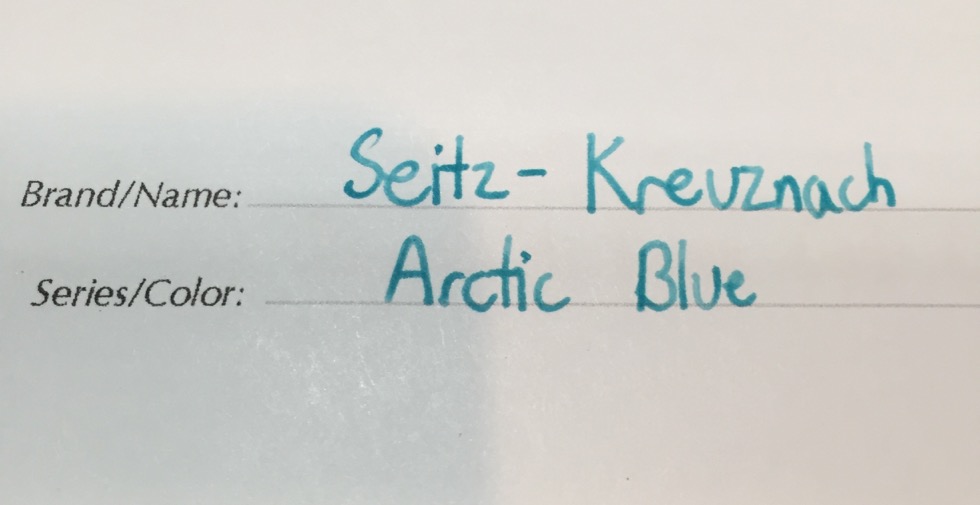 Brand/Name: Seitz-Kreuznach
Series/Color: Arctic Blue